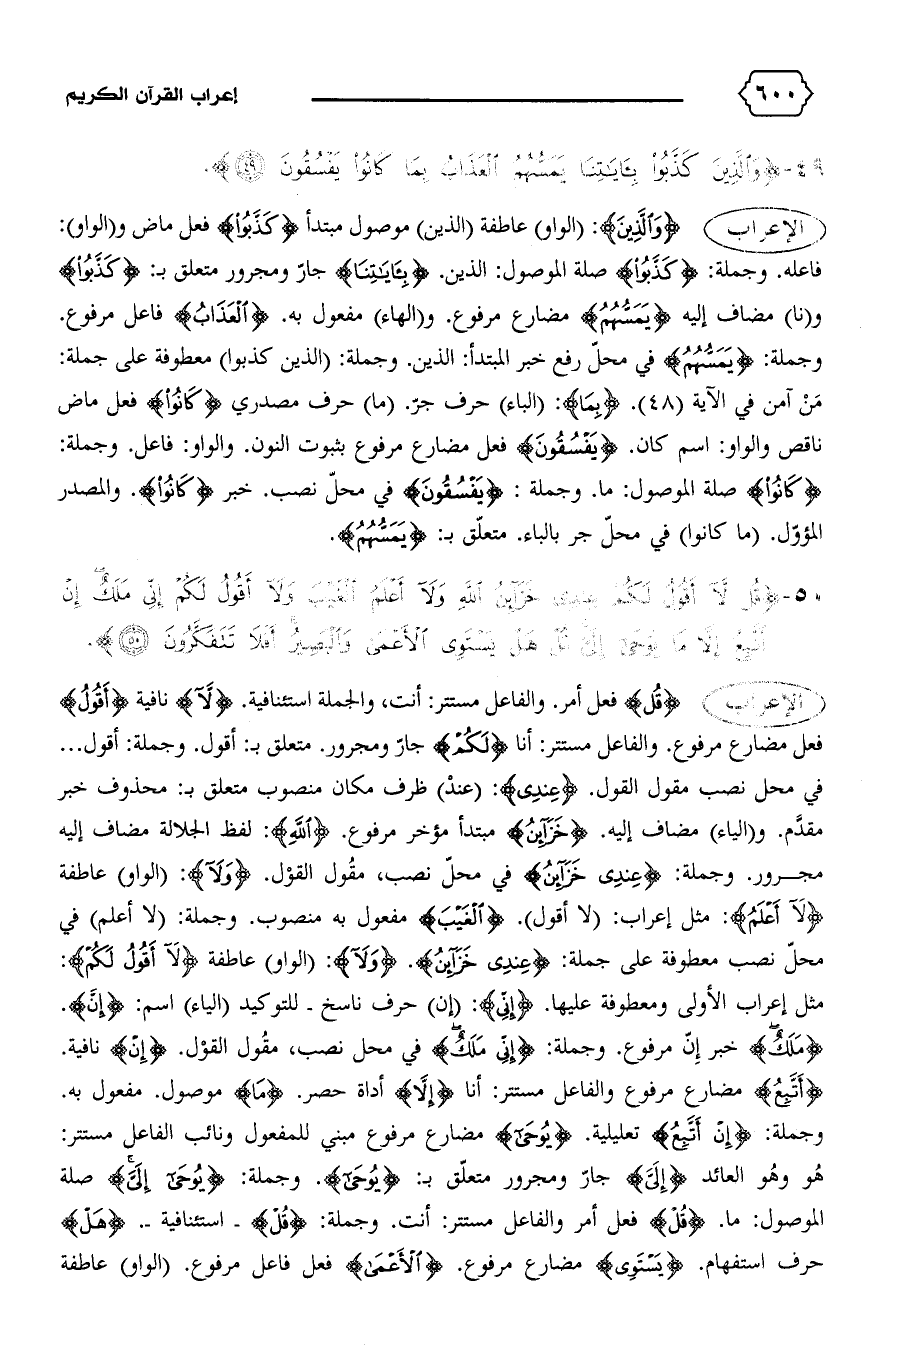 ٦٠٠ إعراب القرآن الكريم
٤٩- ﴿وَٱلَّذِينَ كَذَّبُوا۟ بِـَٔايَـٰتِنَا يَمَسُّهُمُ ٱلْعَذَابُ بِمَا كَانُوا۟ يَفْسُقُونَ ٤٩﴾.
الإعراب ﴿وَٱلَّذِينَ﴾: (الواو) عاطفة (الذين) موصول مبتدأ ﴿كَذَّبُوا۟﴾ فعل ماض و(الواو):
فاعله. وجملة: ﴿كَذَّبُوا۟﴾ صلة الموصول: الذين. ﴿بِـَٔايَـٰتِنَا﴾ جارّ ومجرور متعلق بـ: ﴿كَذَّبُوا۟﴾
و(نا) مضاف إليه ﴿يَمَسُّهُمُ﴾ مضارع مرفوع. و(الهاء) مفعول به. ﴿ٱلْعَذَابُ﴾ فاعل مرفوع.
وجملة: ﴿يَمَسُّهُمُ﴾ في محلّ رفع خبر المبتدأ: الذين. وجملة: (الذين كذبوا) معطوفة على جملة:
مَنْ آمن في الآية (٤٨). ﴿بِمَا﴾: (الباء) حرف جرّ. (ما) حرف مصدري ﴿كَانُوا۟﴾ فعل ماض
ناقص والواو: اسم كان. ﴿يَفْسُقُونَ﴾ فعل مضارع مرفوع بثبوت النون. والواو: فاعل. وجملة:
﴿كَانُوا۟﴾ صلة الموصول: ما. وجملة : ﴿يَفْسُقُونَ﴾ في محلّ نصب. خبر ﴿كَانُوا۟﴾. والمصدر
المؤوّل. (ما كانوا) في محلّ جر بالباء. متعلّق بـ: ﴿يَمَسُّهُمُ﴾.
٥٠- ﴿قُل لَّآ أَقُولُ لَكُمْ عِندِى خَزَآئِنُ ٱللَّهِ وَلَآ أَعْلَمُ ٱلْغَيْبَ وَلَآ أَقُولُ لَكُمْ إِنِّى مَلَكٌ ۖ إِنْ
أَتَّبِعُ إِلَّا مَا يُوحَىٰٓ إِلَىَّ ۚ قُلْ هَلْ يَسْتَوِى ٱلْأَعْمَىٰ وَٱلْبَصِيرُ ۚ أَفَلَا تَتَفَكَّرُونَ ٥٠﴾.
الإعراب ﴿قُل﴾ فعل أمر. والفاعل مستتر: أنت، والجملة استئنافية. ﴿لَآ﴾ نافية ﴿أَقُولُ﴾
فعل مضارع مرفوع. والفاعل مستتر: أنا ﴿لَكُمْ﴾ جارّ ومجرور. متعلق بـ: أقول. وجملة: أقول...
في محل نصب مقول القول. ﴿عِندِى﴾: (عندْ) ظرف مكان منصوب متعلق بـ: محذوف خبر
مقدَّم. و(الياء) مضاف إليه. ﴿خَزَآئِنُ﴾ مبتدأ مؤخر مرفوع. ﴿ٱللَّهِ﴾: لفظ الجلالة مضاف إليه
مجـــرور. وجملة: ﴿عِندِى خَزَآئِنُ﴾ في محلّ نصب، مقُول القوْل. ﴿وَلَآ﴾: (الواو) عاطفة
﴿لَآ أَعْلَمُ﴾: مثل إعراب: (لا أقول). ﴿ٱلْغَيْبَ﴾ مفعول به منصوب. وجملة: (لا أعلم) في
محلّ نصب معطوفة على جملة: ﴿عِندِى خَزَآئِنُ﴾. ﴿وَلَآ﴾: (الواو) عاطفة ﴿لَآ أَقُولُ لَكُمْ﴾:
مثل إعراب الأولى ومعطوفة عليها. ﴿إِنِّى﴾: (إن) حرف ناسخ ـ للتوكيد (الياء) اسم: ﴿إِنَّ﴾.
﴿مَلَكٌ ۖ﴾ خبر إنّ مرفوع. وجملة: ﴿إِنِّى مَلَكٌ ۖ﴾ في محل نصب، مقُول القوْل. ﴿إِنْ﴾ نافية.
﴿أَتَّبِعُ﴾ مضارع مرفوع والفاعل مستتر: أنا ﴿إِلَّا﴾ أداة حصر. ﴿مَا﴾ موصول. مفعول به.
وجملة: ﴿إِنْ أَتَّبِعُ﴾ تعليلية. ﴿يُوحَىٰٓ﴾ مضارع مرفوع مبني للمفعول ونائب الفاعل مستتر:
هُو وهُو العائد ﴿إِلَىَّ﴾ جارّ ومجرور متعلّق بـ: ﴿يُوحَىٰٓ﴾. وجملة: ﴿يُوحَىٰٓ إِلَىَّ ۚ﴾ صلة
الموصول: ما. ﴿قُلْ﴾ فعل أمر والفاعل مستتر: أنت. وجملة: ﴿قُلْ﴾ ـ استئنافية ـ. ﴿هَلْ﴾
حرف استفهام. ﴿يَسْتَوِى﴾ مضارع مرفوع. ﴿ٱلْأَعْمَىٰ﴾ فعل فاعل مرفوع. (الواو) عاطفة